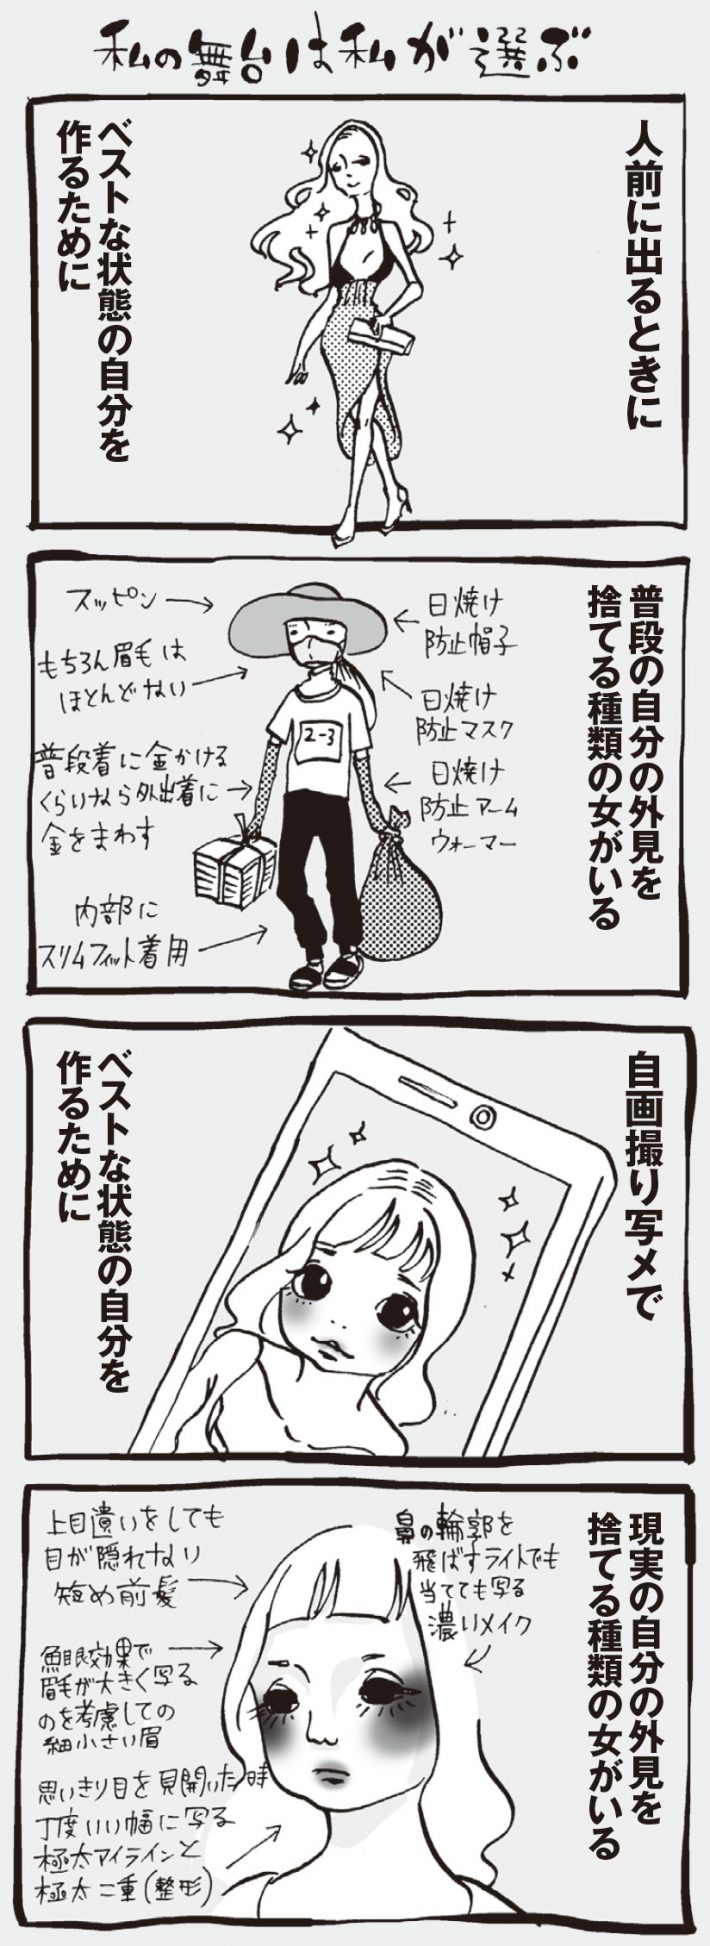 私の舞台は私が選ぶ
人前に出るときに
ベストな状態の自分を
作るために
普段の自分の外見を
捨てる種類の女がいる
日焼け
防止帽子
日焼け
防止マスク
日焼け
防止アーム
ウォーマー
スッピン
もちろん眉毛は
ほとんどない
普段着に金かける
くらいなら外出着に
金をまわす
内部に
スリムフィット着用
2-3
自画撮り写メで
ベストな状態の自分を
作るために
現実の自分の外見を
捨てる種類の女がいる
鼻の輪郭を
飛ばすライトでも
当てても写る
濃いメイク
上目遣いをしても
目が隠れない
短め前髪
魚眼効果で
眉毛が大きく写る
のを考慮しての
細小さい眉
思いきり目を見開いた時
丁度いい幅に写る
極太アイラインと
極太二重(整形)